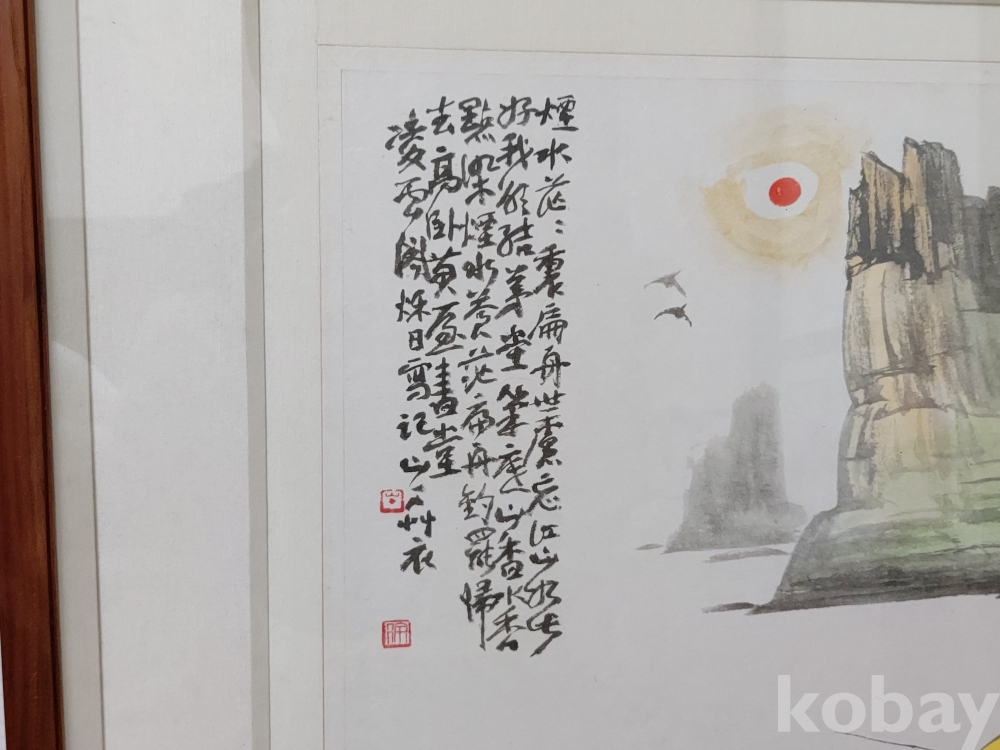 煙水茫〻裏扁舟世慮忘江山如此
好我欲結茅堂筆底山香水香
點染煙水蒼茫扁舟釣罷歸
去高臥黃書堂
凌雲閣秋日寫記山人艸衣
kobay